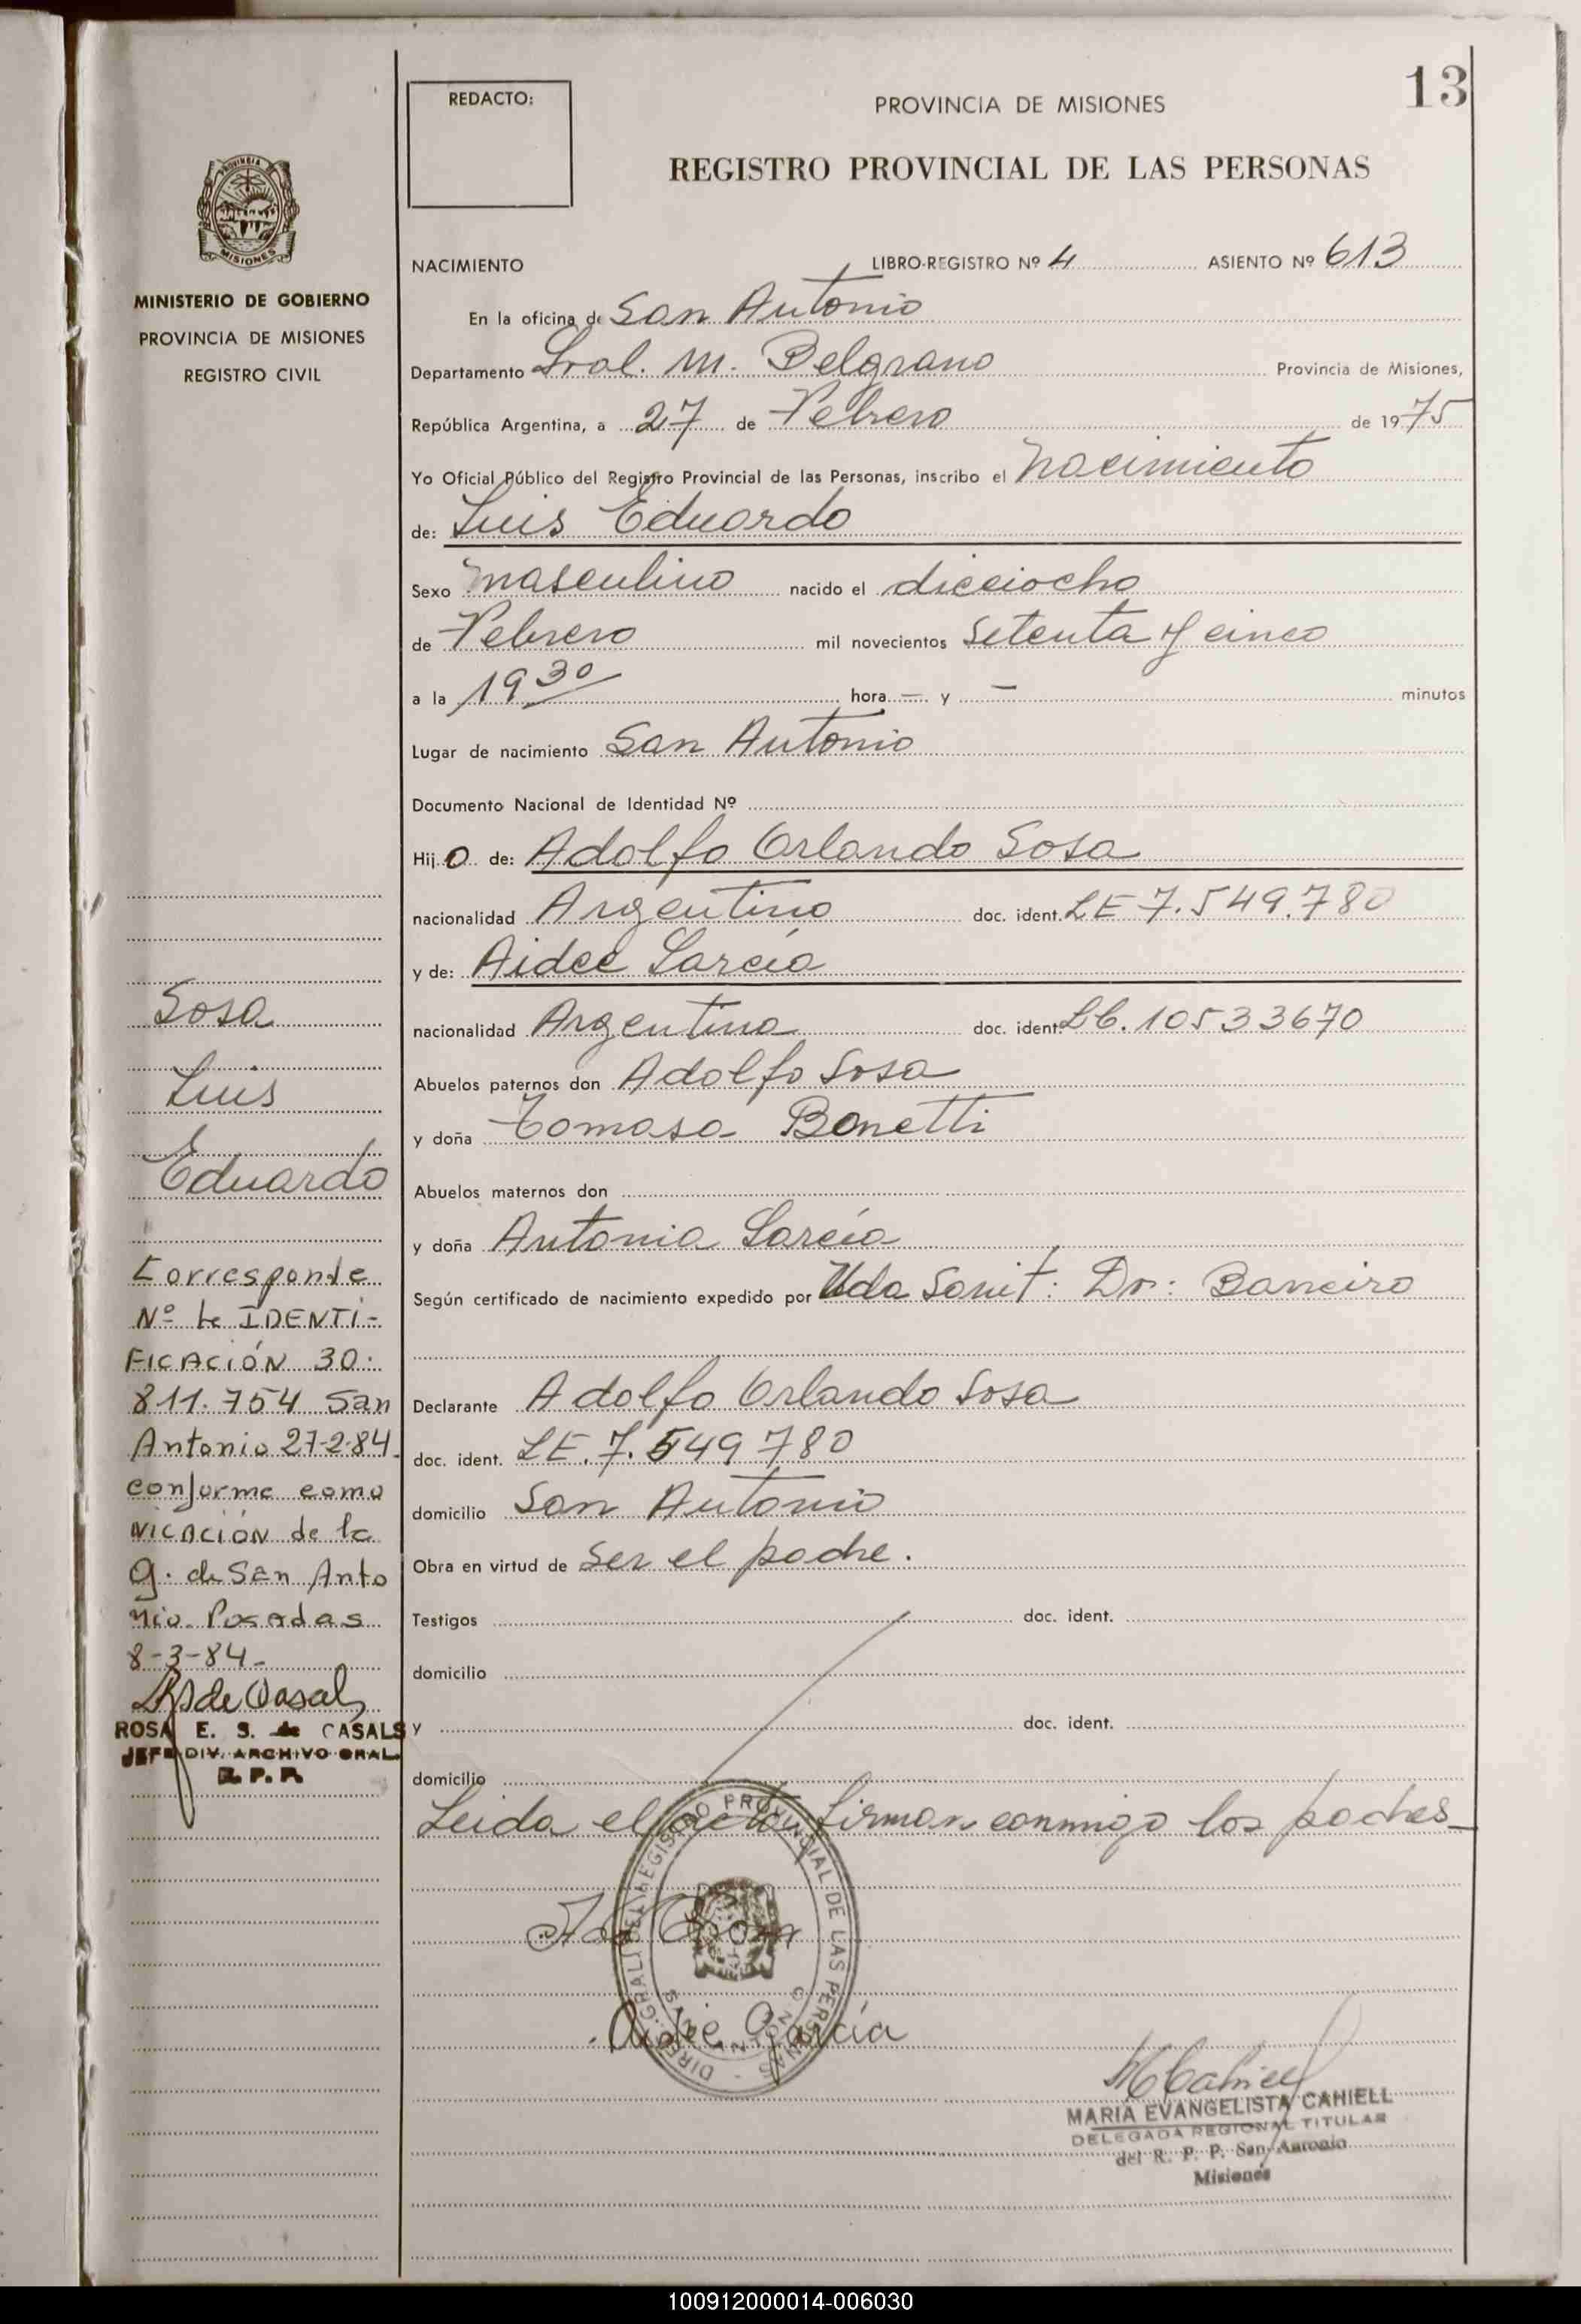 13
REDACTO:
PROVINCIA DE MISIONES
REGISTRO PROVINCIAL DE LAS PERSONAS
PROVINCIA
MISIONES
MINISTERIO DE GOBIERNO
PROVINCIA DE MISIONES
REGISTRO CIVIL
NACIMIENTO LIBRO-REGISTRO Nº 4 ASIENTO Nº 613
En la oficina de San Antonio
Departamento Gral. M. Belgrano Provincia de Misiones,
República Argentina, a 27 de Febrero de 1975
Yo Oficial Público del Registro Provincial de las Personas, inscribo el nacimiento
de: Luis Eduardo
Sexo masculino nacido el dieciocho
de Febrero mil novecientos setenta y cinco
a la 19 30 hora — y — minutos
Lugar de nacimiento San Antonio
Documento Nacional de Identidad Nº
Hijo de: Adolfo Orlando Sosa
nacionalidad Argentino doc. ident. LE 7.549.780
y de: Aidee García
nacionalidad Argentina doc. ident. LC. 10533670
Abuelos paternos don Adolfo Sosa
y doña Tomasa Bonetti
Abuelos maternos don
y doña Antonia García
Según certificado de nacimiento expedido por Uda Sanit: Dr: Barreiro
Declarante Adolfo Orlando Sosa
doc. ident. LE. 7.549780
domicilio San Antonio
Obra en virtud de ser el padre.
Testigos doc. ident.
domicilio
y doc. ident.
domicilio
Leida el acta, firman conmigo los padres
DIREC. GRAL. DEL REGISTRO PROVINCIAL DE LAS PERSONAS
SAN ANTONIO
Aidée García
MARIA EVANGELISTA CAHIELL
DELEGADA REGIONAL TITULAR
del R. P. P. San Antonio
Misiones
Sosa
Luis
Eduardo
Corresponde
Nº de IDENTI-
FICACIÓN 30.
811.754 San
Antonio 27-2-84
conforme comu
NICACIÓN de la
O. de San Anto
nio. Posadas
8-3-84-
ROSA E. S. de CASALS
JEFE DIV. ARCHIVO GRAL
R. P. P.
100912000014-006030